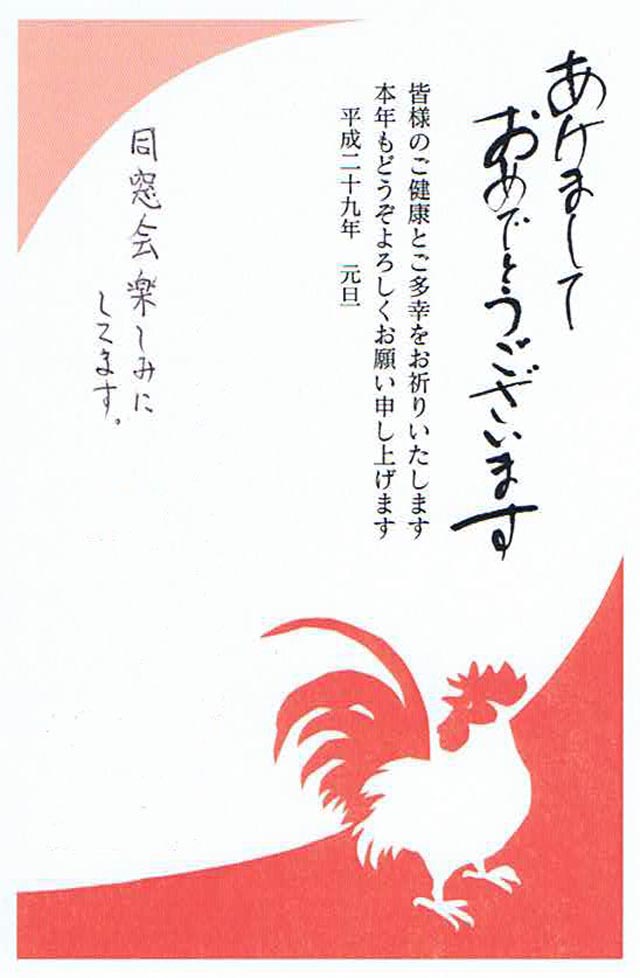 あけまして
おめでとうございます
皆様のご健康とご多幸をお祈りいたします
本年もどうぞよろしくお願い申し上げます
平成二十九年　元旦
同窓会楽しみに
してます。